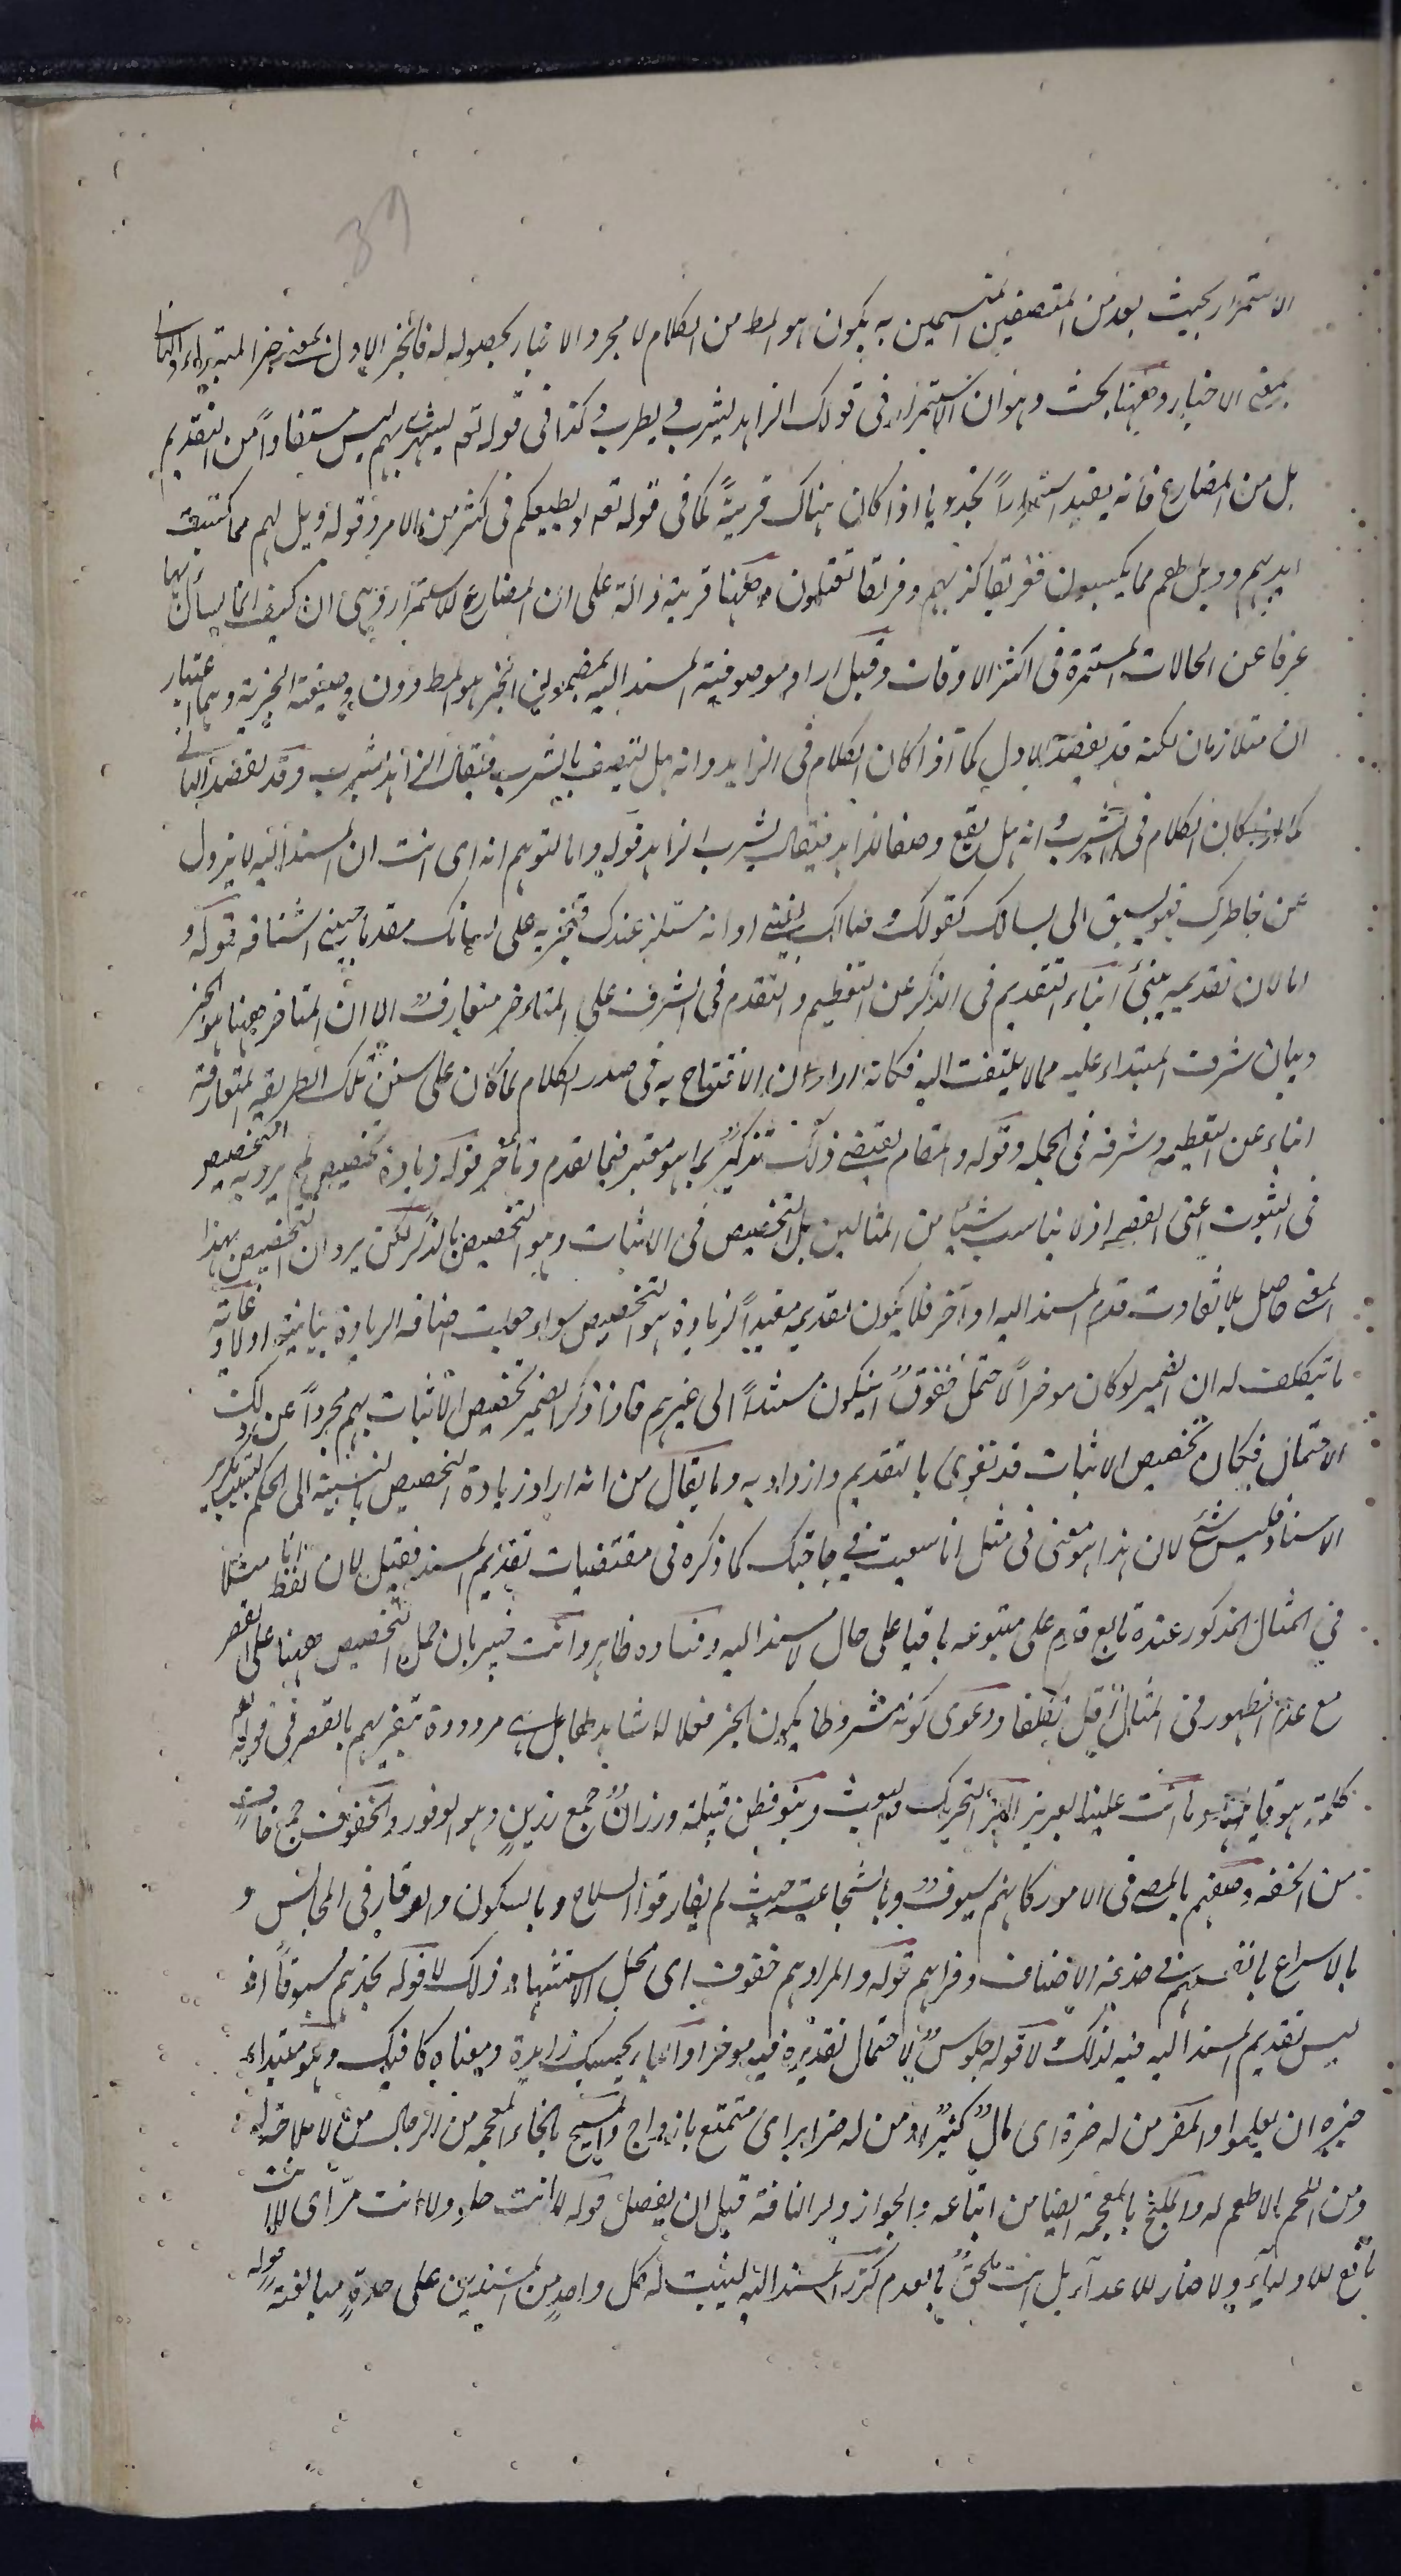 39
الاستمرار بحيث يعد من المتصفين المتسمين به يكون هو المط من الكلام لا مجرد الاخبار بحصوله له فالخبر الاول بمعنى خبر المبتداء والثانى
بمعنى الاخبار وههنا بحث وهو ان الاستمرار فى قولك الزاهد يشرب ويطرب وكذا فى قوله تعه يستهزئ بهم ليس مستفادا من التقديم
بل من المضارع فانه يفيد استمرارا تجدديا اذا كان هناك قرينة كما فى قوله تعه لو يطيعكم فى كثير من الامر وقوله ويل لهم مما كتبت
ايديهم وويل لهم مما يكسبون ففريقا كذبتهم وفريقا تقتلون وههنا قرينة دالة على ان المضارع للاستمرار وهى ان كيف انما يسأل بها
عرفا عن الحالات المستمرة فى اكثر الاوقات وقيل اراد موصوفية المسند اليه بمضمون الخبر هو المط دون وصفية الخبرية وهما اعتبار
ان متلازمان لكنه قد يقصد الاول كما اذا كان الكلام فى الزاهد وانه هل يتصف بالشرب فيقال الزاهد يشرب وقد يقصد الثانى
كما اذا كان الكلام فى الشرب انه هل يقع وصفا للزاهد فيقال يشرب الزاهد قوله واما لتوهم انه اى انت ان المسند اليه لا يزول
عن خاطرك فهو يسبق الى لسانك كقولك رضاك بغيتى او انه مستلذ عندك فتجريه على لسانك مقدما حينئ استنافه قوله و
اما لان تقديمه ينبئ انباء التقديم فى الذكر عن التعظيم والتقدم فى الشرف على المتاخر متعارف الا ان المتاخر ههنا هو الخبر
وبيان شرف المبتداء عليه مما لا يلتفت اليه فكانه اراد ان الافتتاح به فى صدر الكلام لما كان على سنن تلك الطريقه المتعارفة
انباء عن تعظيمه وشرفه فى الجمله وقوله والمقام يقتضى ذلك تذكير لما هو معتبر فيما تقدم وتأخر قوله وزيادة تخصيص لم يرد به التخصيص
فى الثبوت اعنى القصر اذ لا يناسب شيئا من المثالين بل التخصيص فى الاثبات وهو التخصيص بالذكر لكن يرد ان التخصيص بهذا
المعنى حاصل بلا تفاوت قدم المسند اليه او آخر فلا يكون تقديمه مفيدا لزيادة هو التخصيص سواء جعلت اضافه الزيادة بيانية او لا وغاية
ما تيكلف له ان الضمير لو كان موخرا لاحتمل خفوق ان يكون مسندا الى غيرهم فاذا ذكر الضمير تخصيص الاثبات بهم مجردا عن ذلك
الاحتمال فكان تخصيص الاثبات قد تقوى بالتقديم وازداد به وما يقال من انه اراد زيادة التخصيص بالنسبة الى الحكم بسبب تكرير
الاسناد فليس بشئ لان هذا هو معنى فى مثل انا سعيت فى حاجتك كما ذكره فى مقتضيات تقديم المسند فقيل لان لفظ انا مثلا
فى المثال المذكور عنده تابع قدم على متبوعه باقيا على حال لا مسند اليه وفساده ظاهر وانت خبير بان حمل التخصيص ههنا على القصر
مع عدم الظهور فى المثال اقل تكلفا ودعوى كونه مشروطا بكون الخبر فعلا لا شاهد لها بل هى مردودة بتفسيرهم بالقصر فى قوله تعه
كلمة هو قائلها وما انت علينا بعزيز الهز التحريك وليوث وبنو قطن قبيلة ورزان جمع رزين وهو الوفور والخفوف جمع خاف
من الخفه وصفهم بالمص فى الامور كانهم سيوف وبالشجاعيه حيث لم يفارقوا السلاح وبالسكون والوقار فى المجالس و
بالاسراع بانفسهم فى خدمة الاضياف وقراهم قوله والمراد هم خفوف اى محل الاستشهاد ذلك لا قوله تجدهم سيوفا اذ
ليس تقديم المسند اليه فيه لذلك ولا قوله جلوس لاحتمال تقديره فيه موخرا والباء بحسبك زايدة ومعناه كافيك وهو مبتداء
خبره ان يعلموا والمضر من له ضرة اى مال كثير او من له ضراير اى متمتع بازواج والمسيخ بالخاء المعجمه من الرجال من لا ملاحة له
ومن اللحم ما لا طعم له والمليخ بالمعجمة ايضا من اتباعه والحوار ولد الناقة قبل ان يفصل قوله لا انت حلو ولا انت مر اى لا انت
نافع للاولياء ولا ضار للاعدآء بل انت ملحق بالعدم كرر المسند اليه ليثبت له كل واحد من المسندين على حدة مبالغة قوله